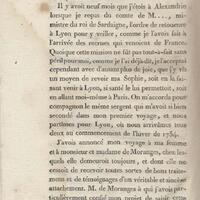 Il y avoit neuf mois que j'étois à Alexandrie
lorsque je reçus du comte de M...., mi-
nistre du roi de Sardaigne, l'ordre de retourner
à Lyon pour y veiller, comme je l'avois fait à
l'arrivée des recrues qui venoient de France.
Quoique cette mission ne fût pas tout-à-fait sans
péril pour moi, comme je l'ai déjà dit, je l'acceptai
cependant avec d'autant plus de joie, que j'y vis
un moyen de revoir ma Sophie, soit en la fai-
sant venir à Lyon, si sa santé le lui permettoit, soit
en allant moi-même à Paris. On m'accorda pour
compagnon le même sergent qui m'avoit si bien
secondé dans mon premier voyage, et nous
partîmes pour Lyon, où nous arrivâmes tous
deux au commencement de l'hiver de 1754.
J'avois annoncé mon voyage à ma femme
et à monsieur et madame de Morangra, chez les-
quels elle demeuroit toujours, et dont elle ne
cessoit de recevoir toutes sortes de bons traite-
mens et de témoignages d'un véritable et sincère
attachement. M. de Morangra à qui j'avois par-
ticulièrement confié mon projet de saisir cette